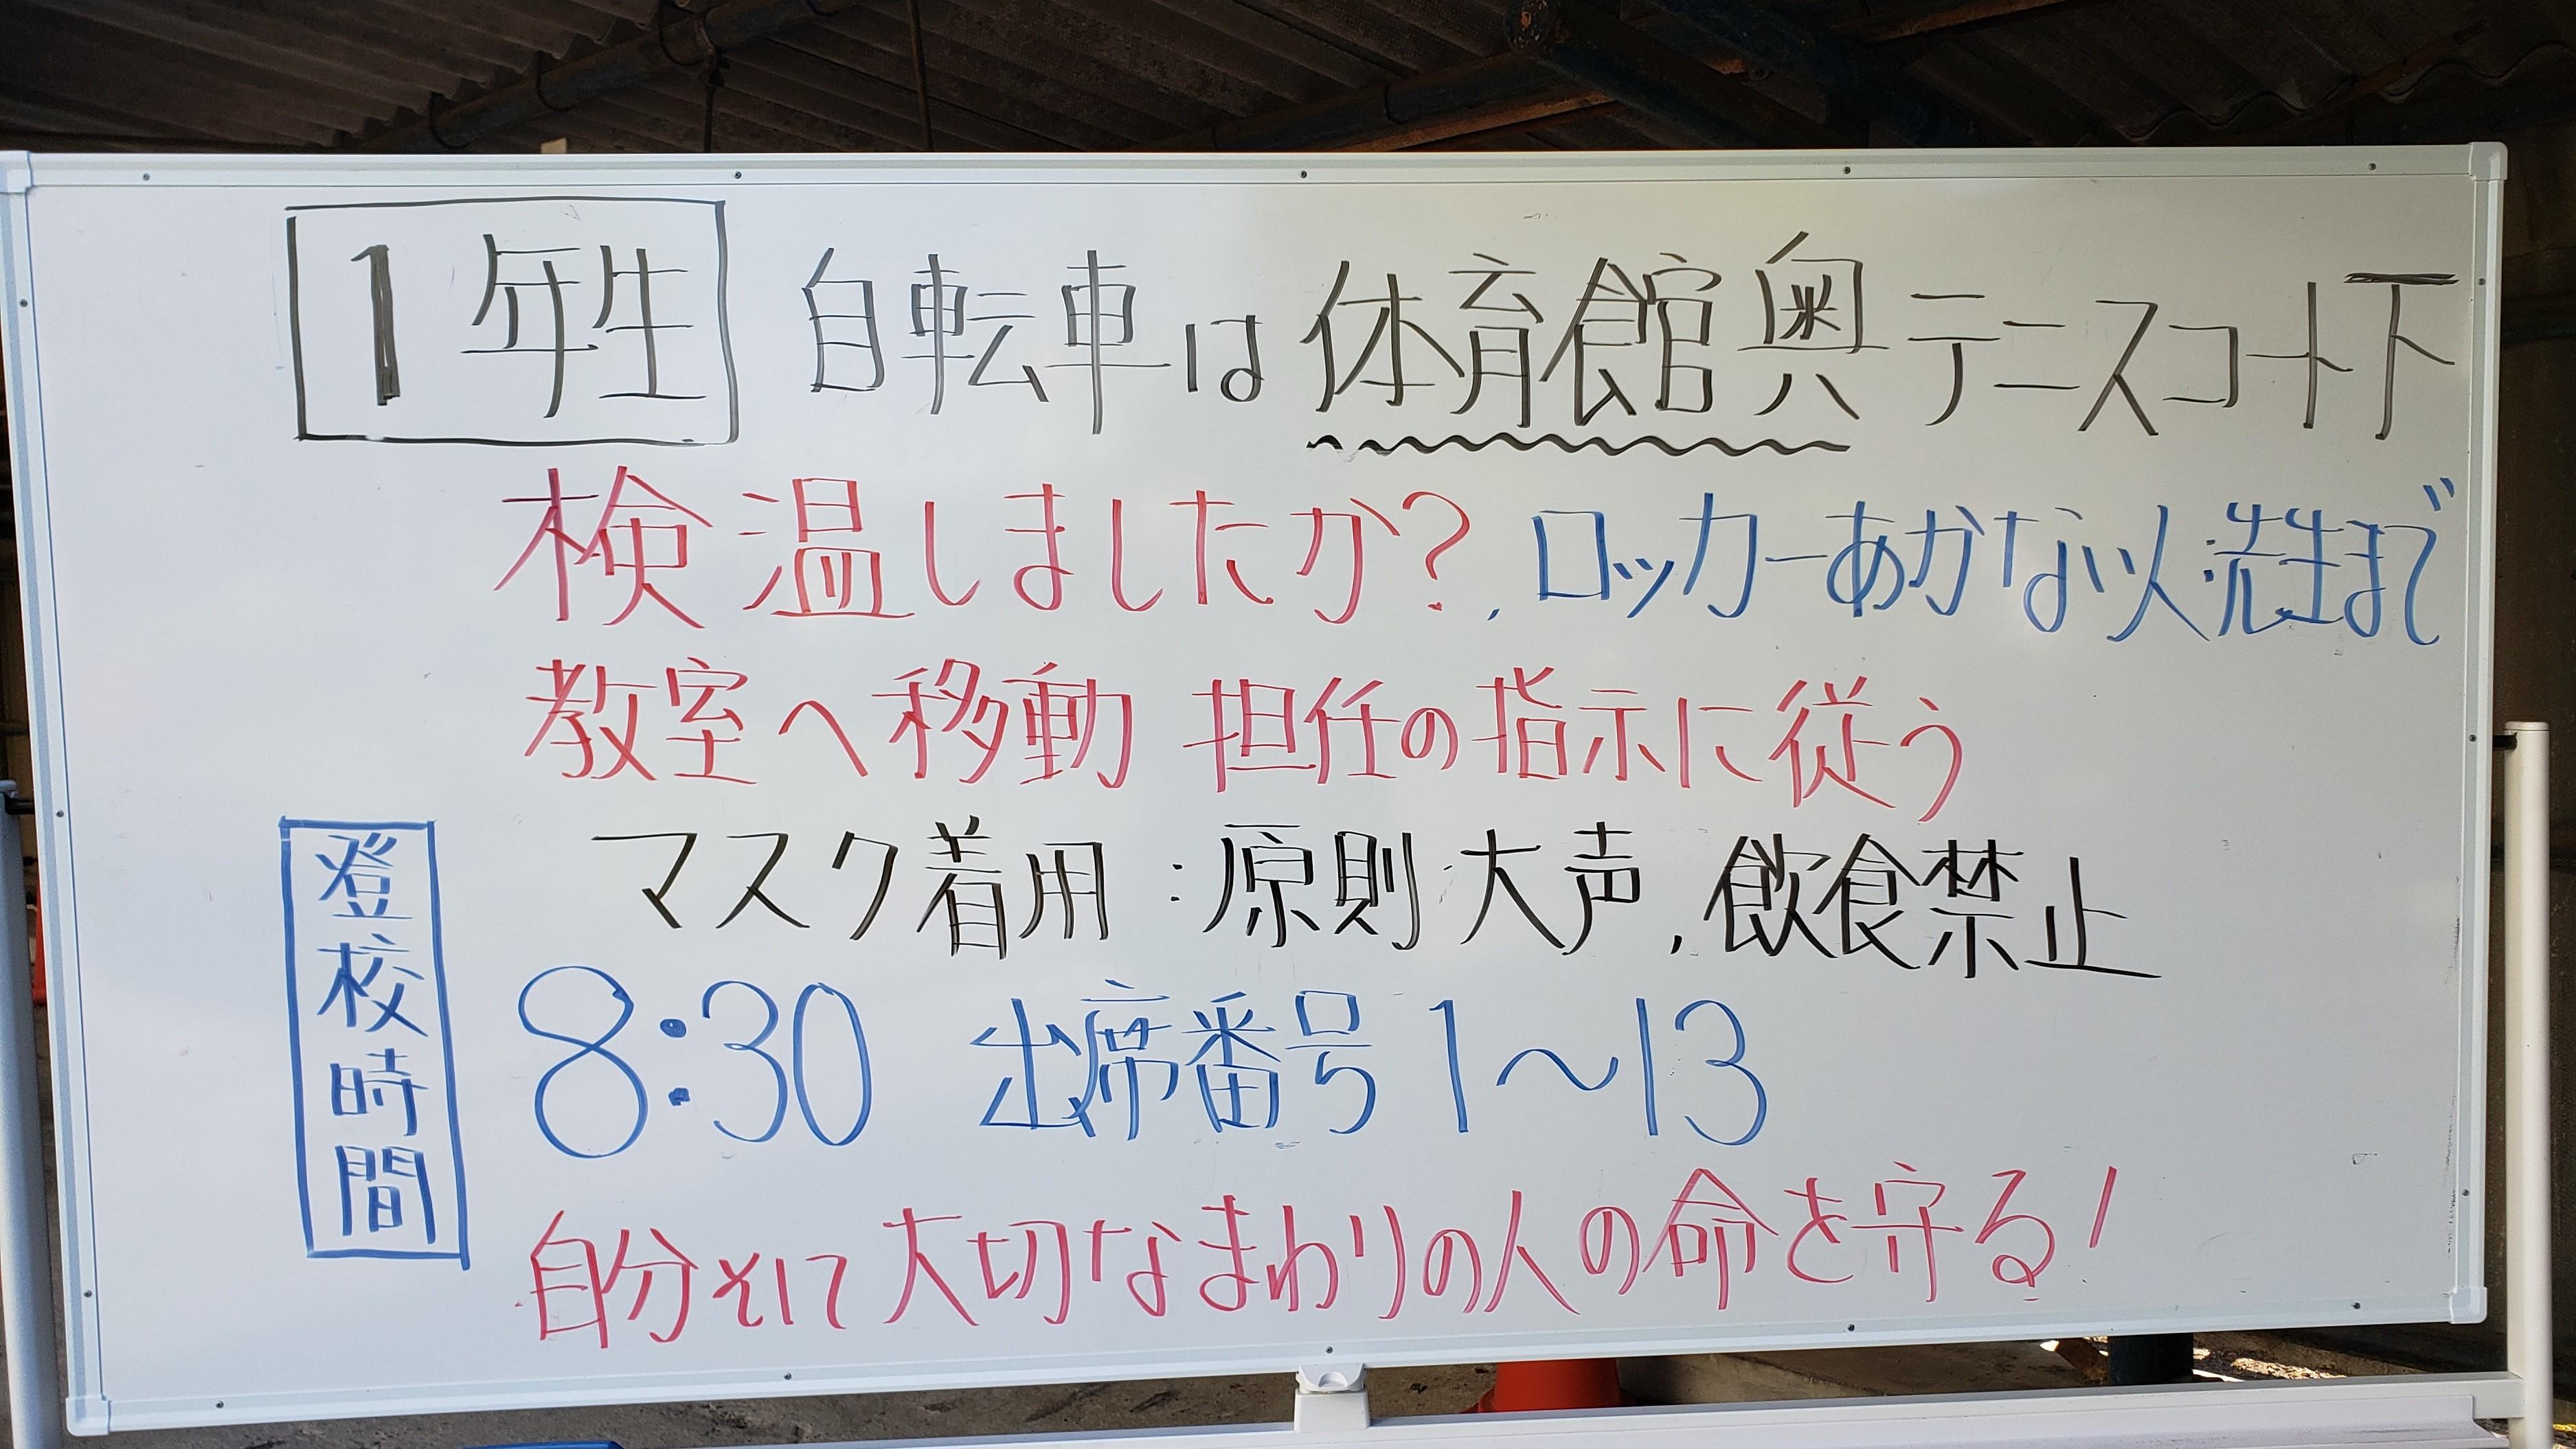 1年生 自転車は体育館奥テニスコート下
検温しましたか?,ロッカーあかない人先生まで
教室へ移動 担任の指示に従う
マスク着用:原則 大声,飲食禁止
登校時間
8:30 出席番号1〜13
自分そして大切なまわりの人の命を守る!